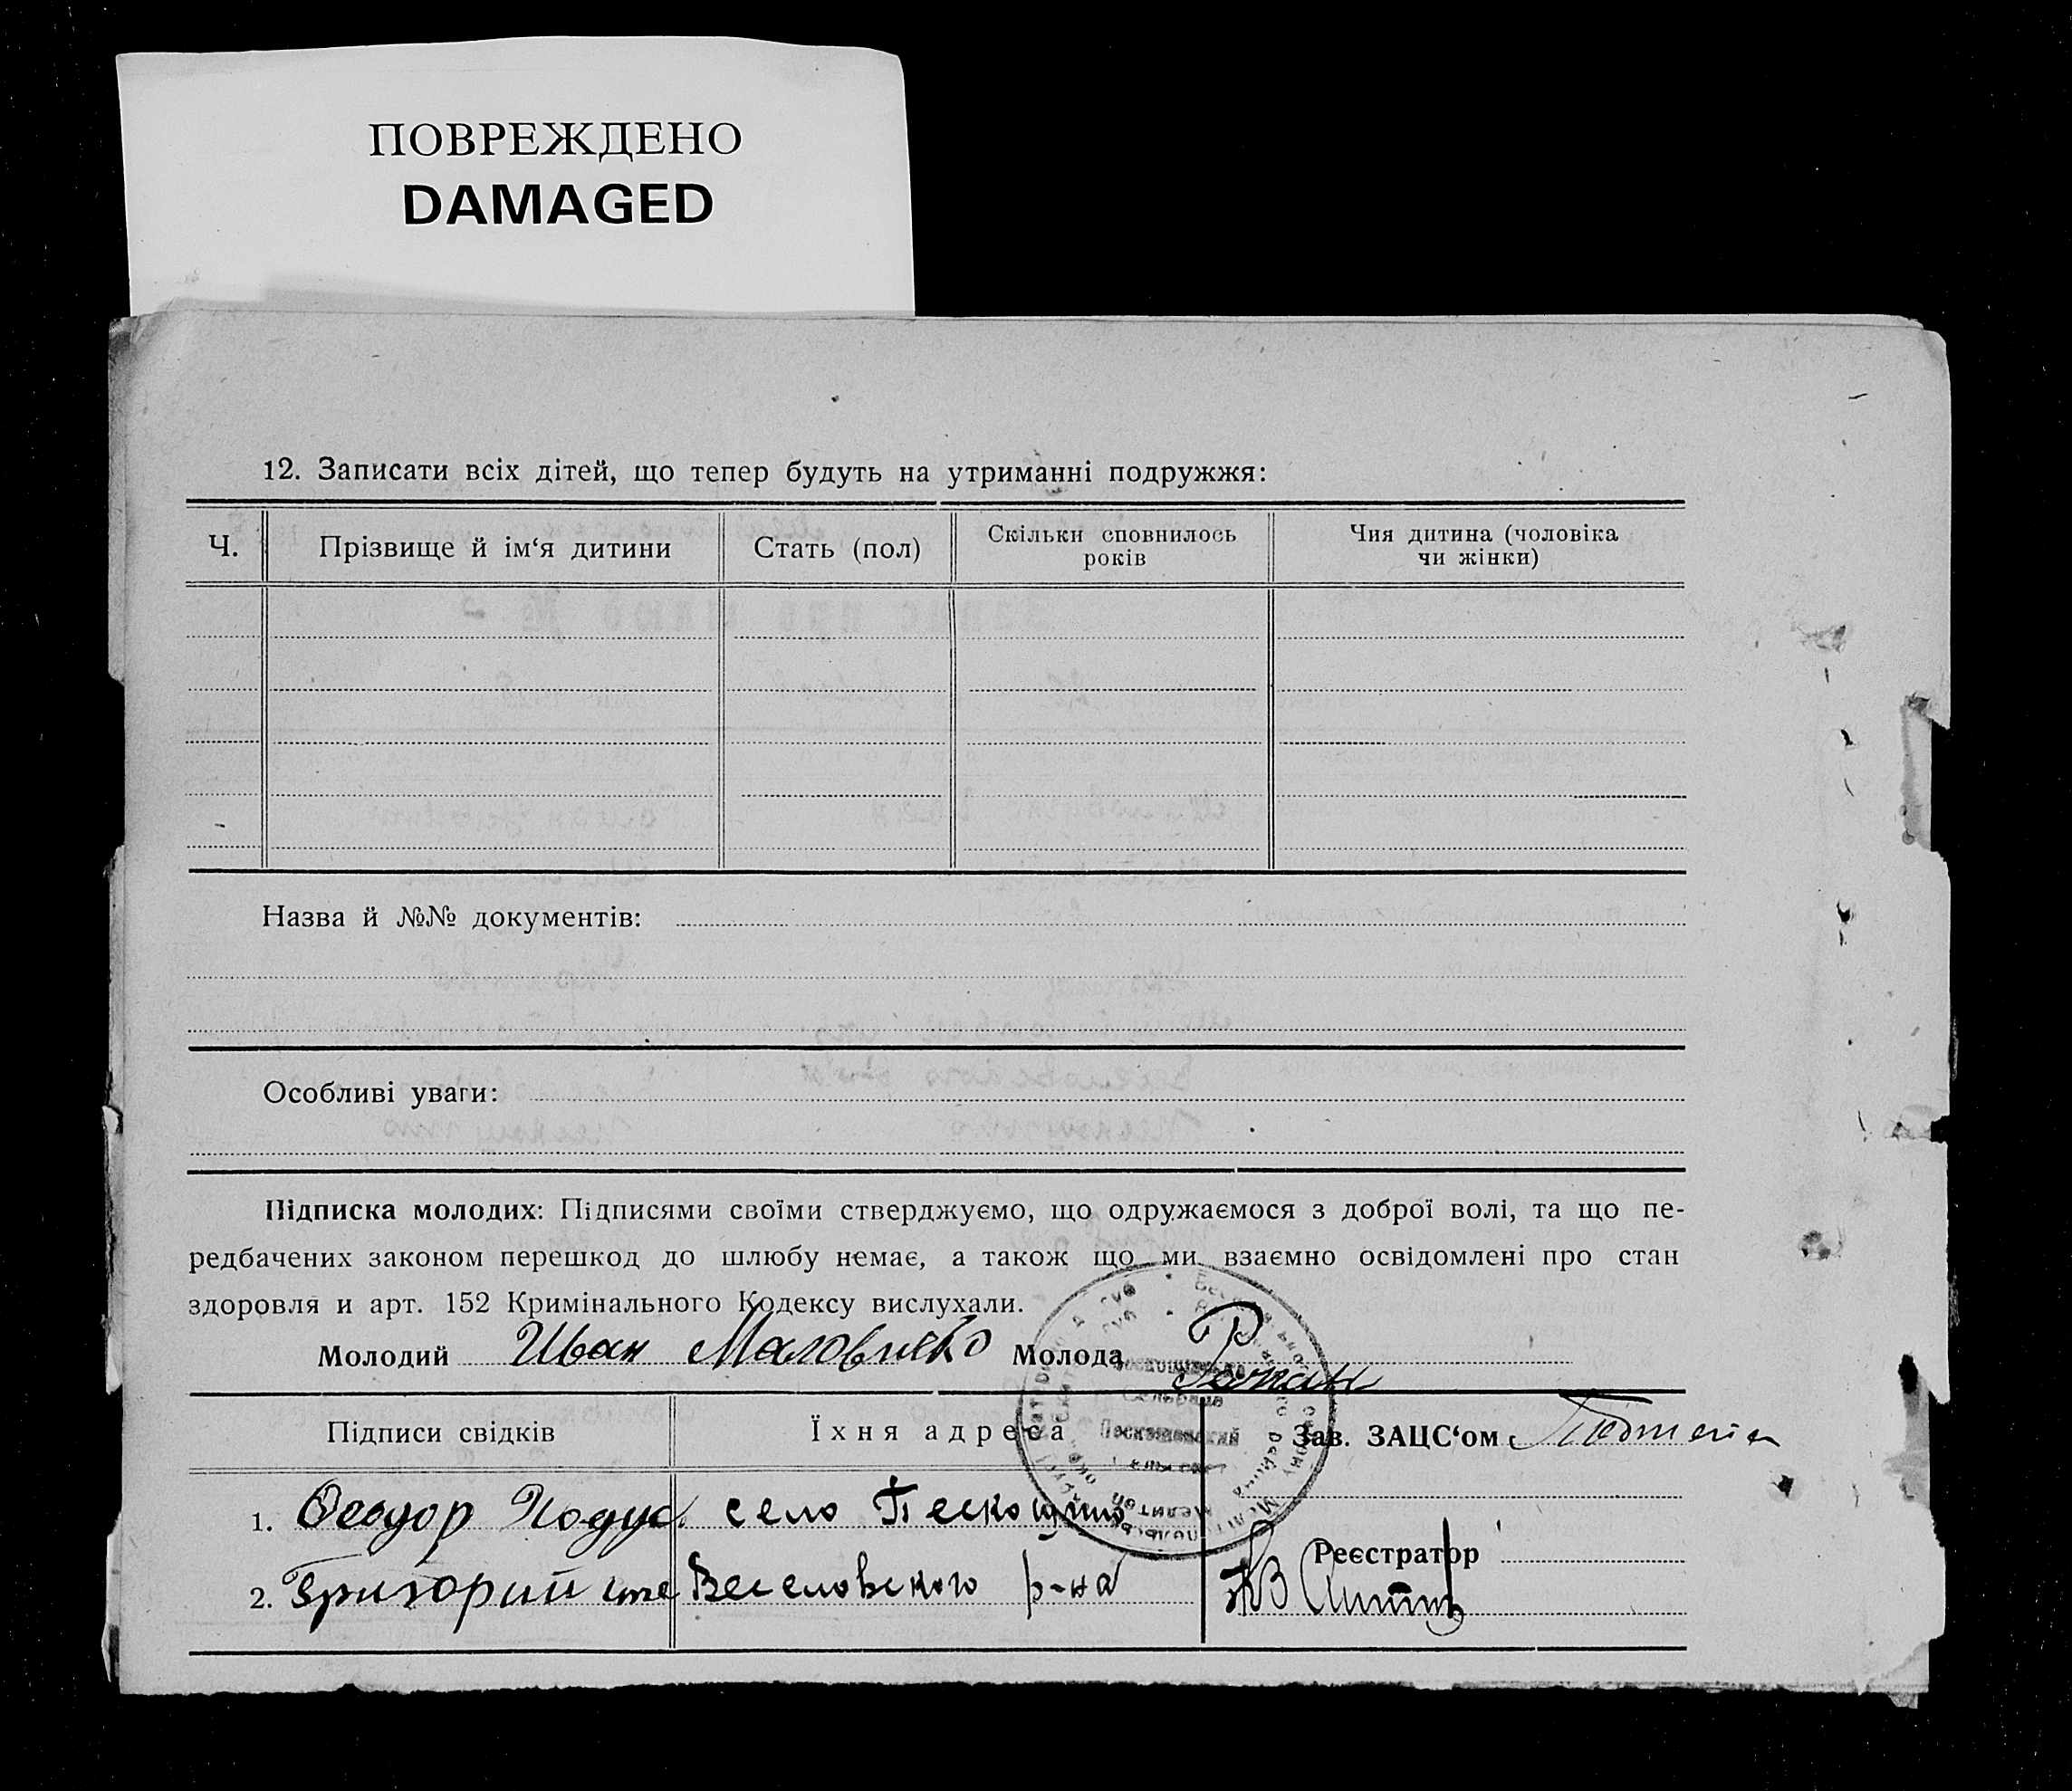 ПОВРЕЖДЕНО
DAMAGED
12. Записати всіх дітей, що тепер будуть на утриманні подружжя:
Ч. Прізвище й ім‘я дитини Стать (пол) Скільки сповнилось років Чия дитина (чоловіка чи жінки)
Назва й №№ документів:
Особливі уваги:
Підписка молодих: Підписями своїми стверджуємо, що одружаємося з доброї волі, та що пе-
редбачених законом перешкод до шлюбу немає, а також що ми взаємно освідомлені про стан
здоровля и арт. 152 Кримінального Кодексу вислухали.
Молодий Иван Маловичко Молода
Підписи свідків Їхня адреса Зав. ЗАЦС‘ом
1. Феодор село Пескошино
Реєстратор
2. Григорий Веселовского р-на